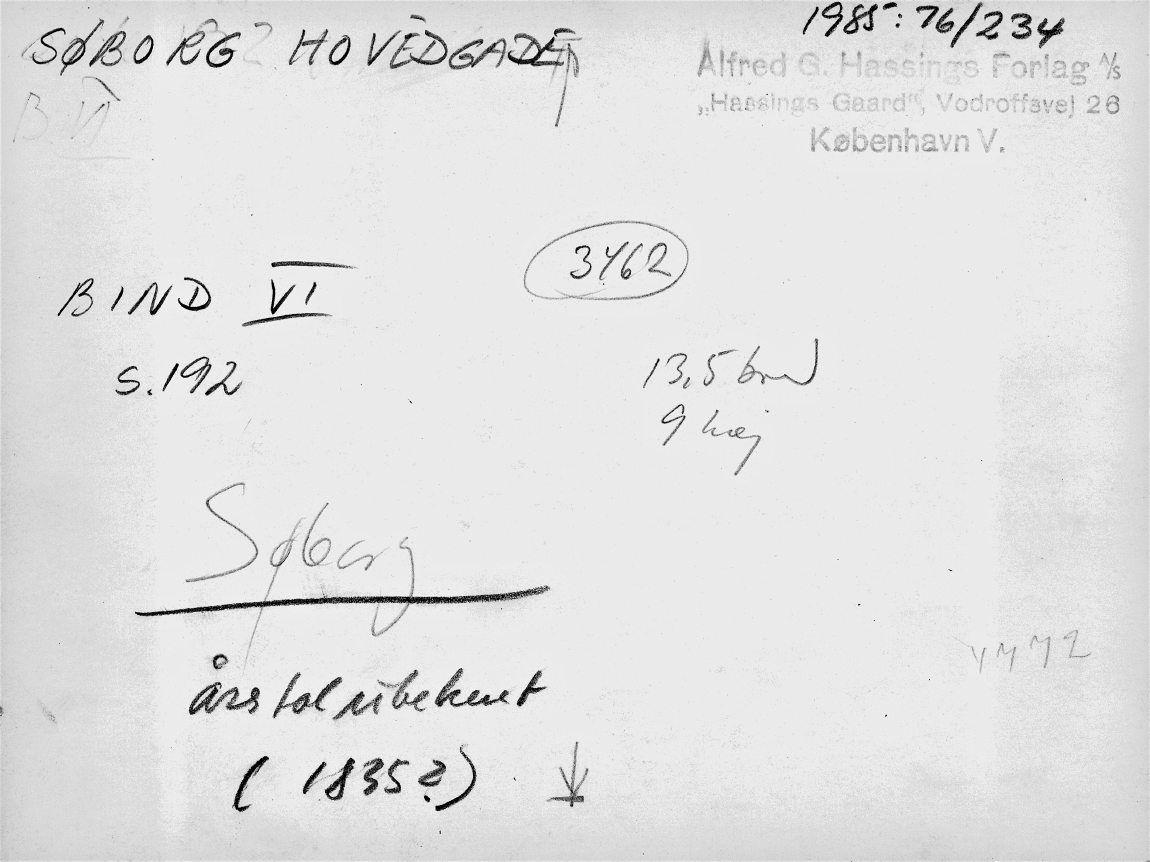 SØBORG HOVEDGADE
1985: 76/234
Alfred G. Hassings Forlag A/s
„Hassings Gaard", Vodroffsvej 26
København V.
B. VI
3462
BIND VI
s. 192
13,5 bred
9 høj
Søborg
årstal ubekent
(1835?)